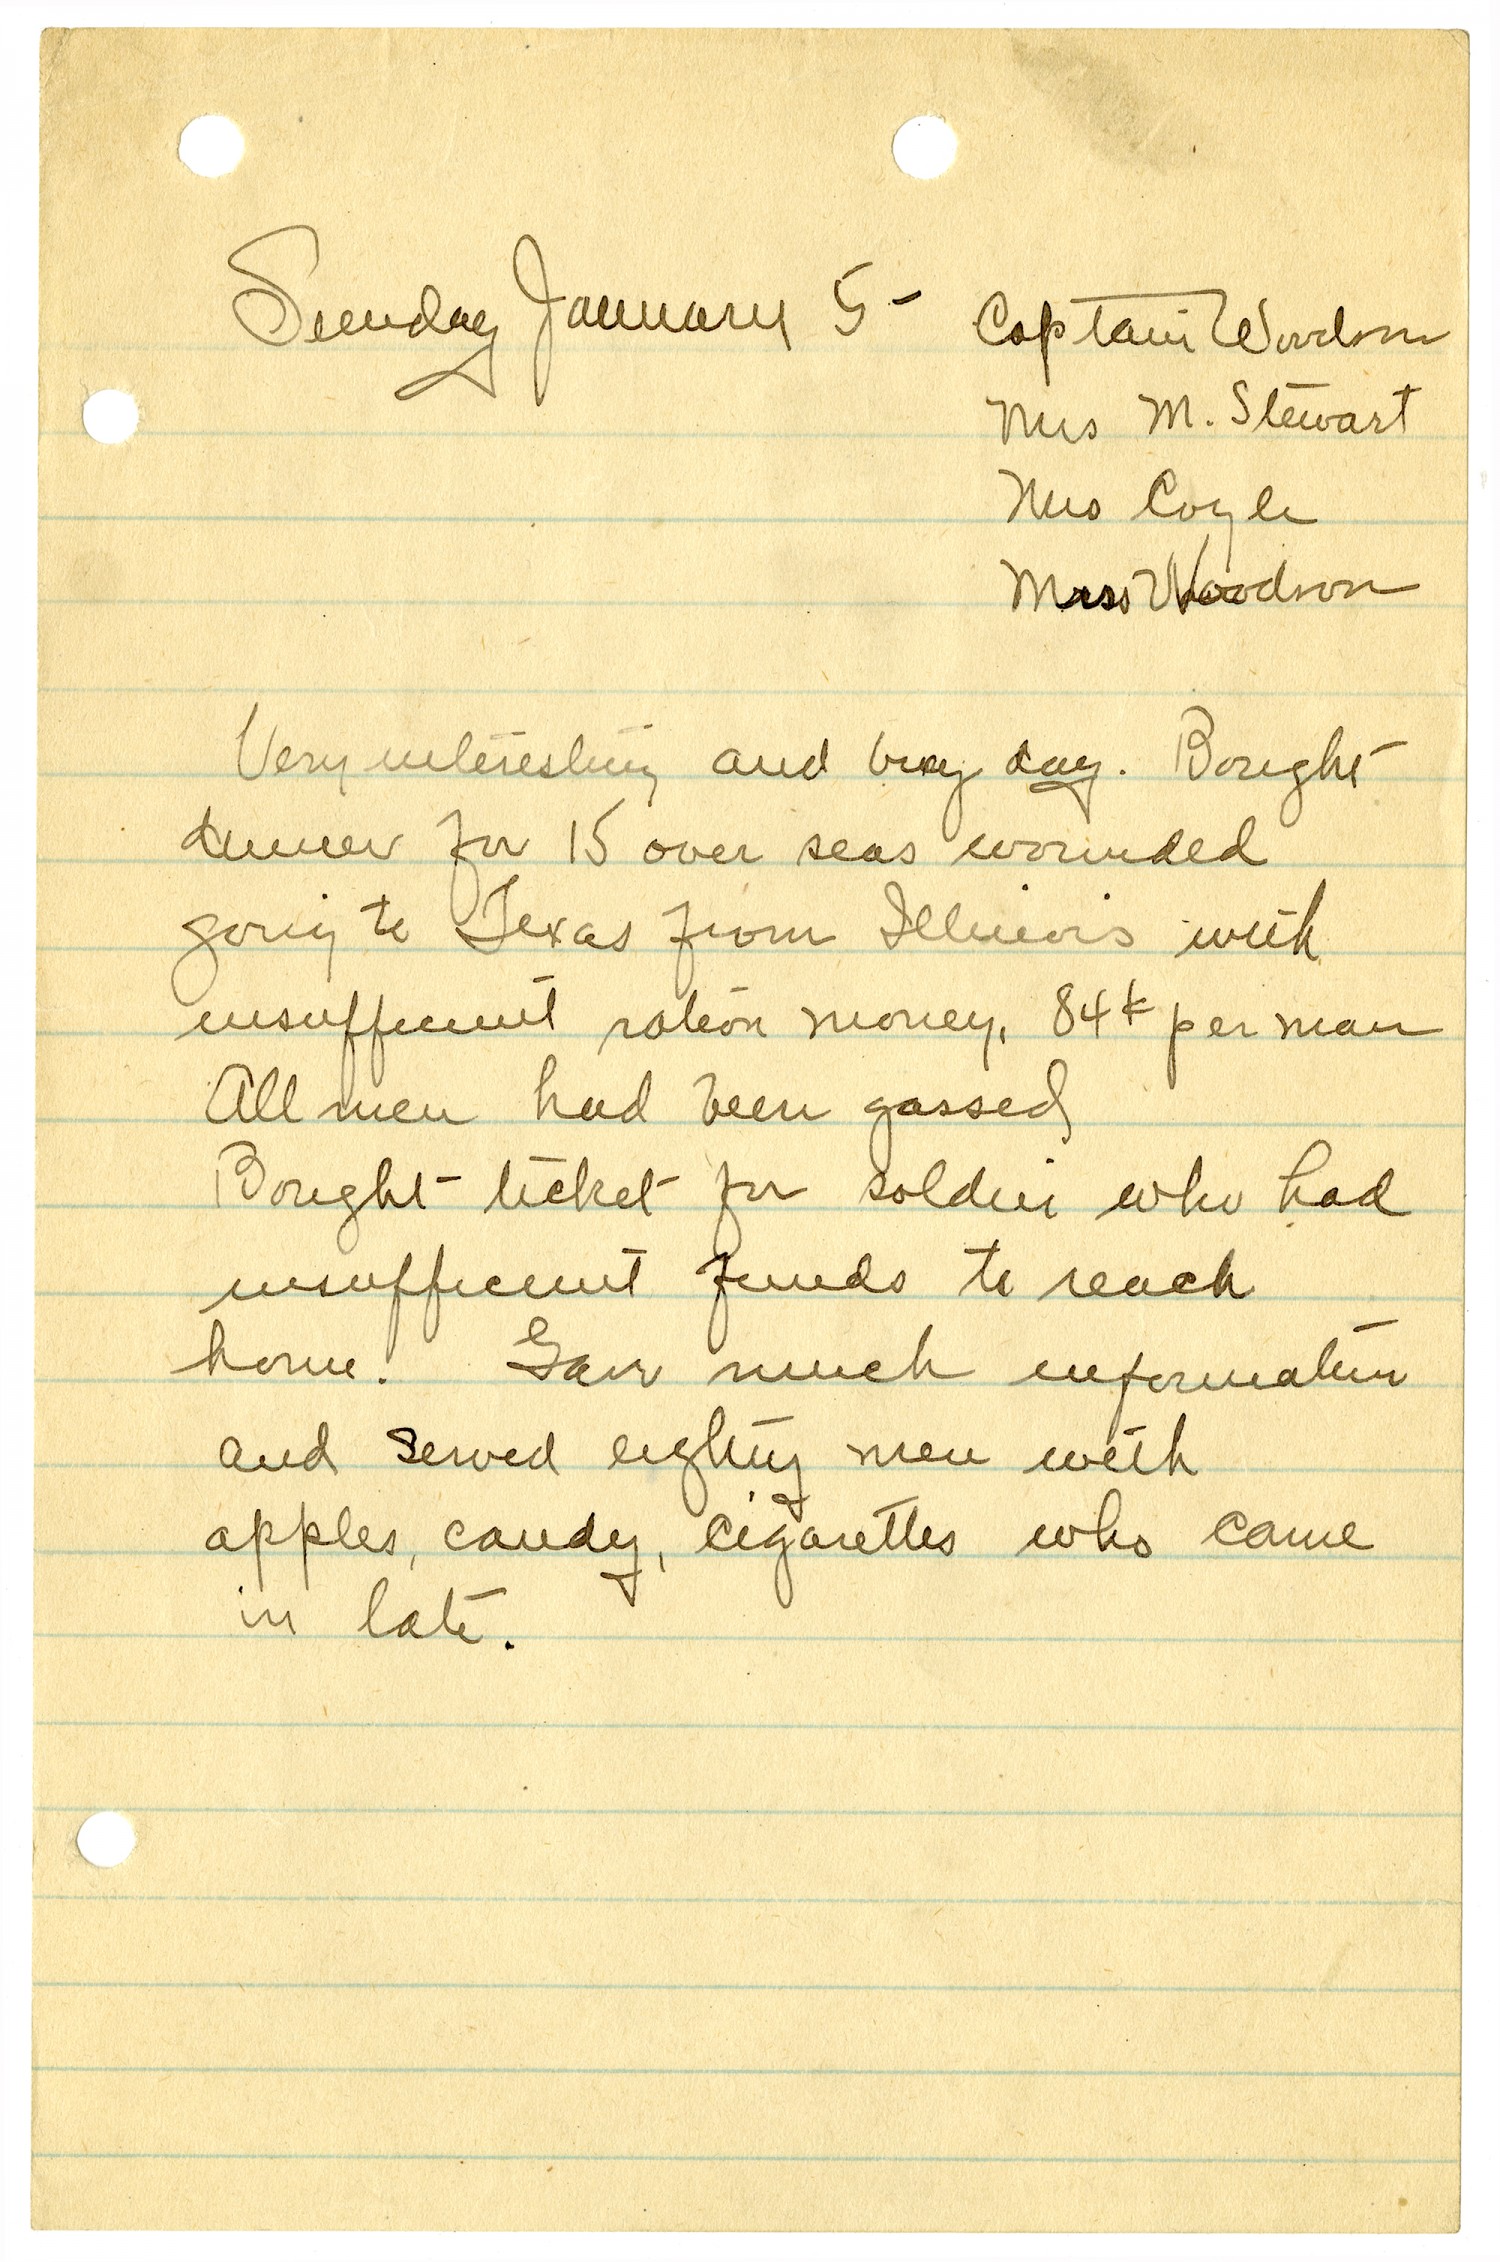 Sunday January 5 - Captain Woodson
Mrs M. Stewart
Mrs Coyle
Miss Woodson
Very interesting and busy day. Bought
dinner for 15 over seas wounded
going to Texas from Illinois with
insufficient ration money, 84¢ per man
All men had been gassed
Bought ticket for soldier who had
insufficient funds to reach
home. Gave much information
and served eighty men with
apples, candy, cigarettes who came
in late.